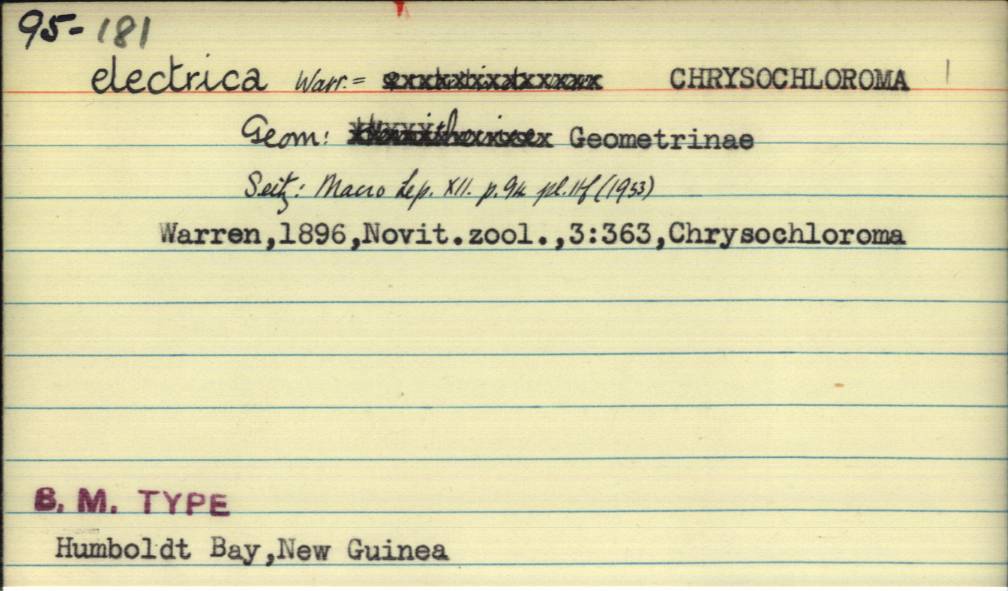 95-181
electrica Warr. = CHRYSOCHLOROMA 1
Geom: Geometrinae
Seitz: Macro Lep. XII. p.94 pl.11f (1933)
Warren,1896,Novit.zool.,3:363,Chrysochloroma
B. M. TYPE
Humboldt Bay,New Guinea